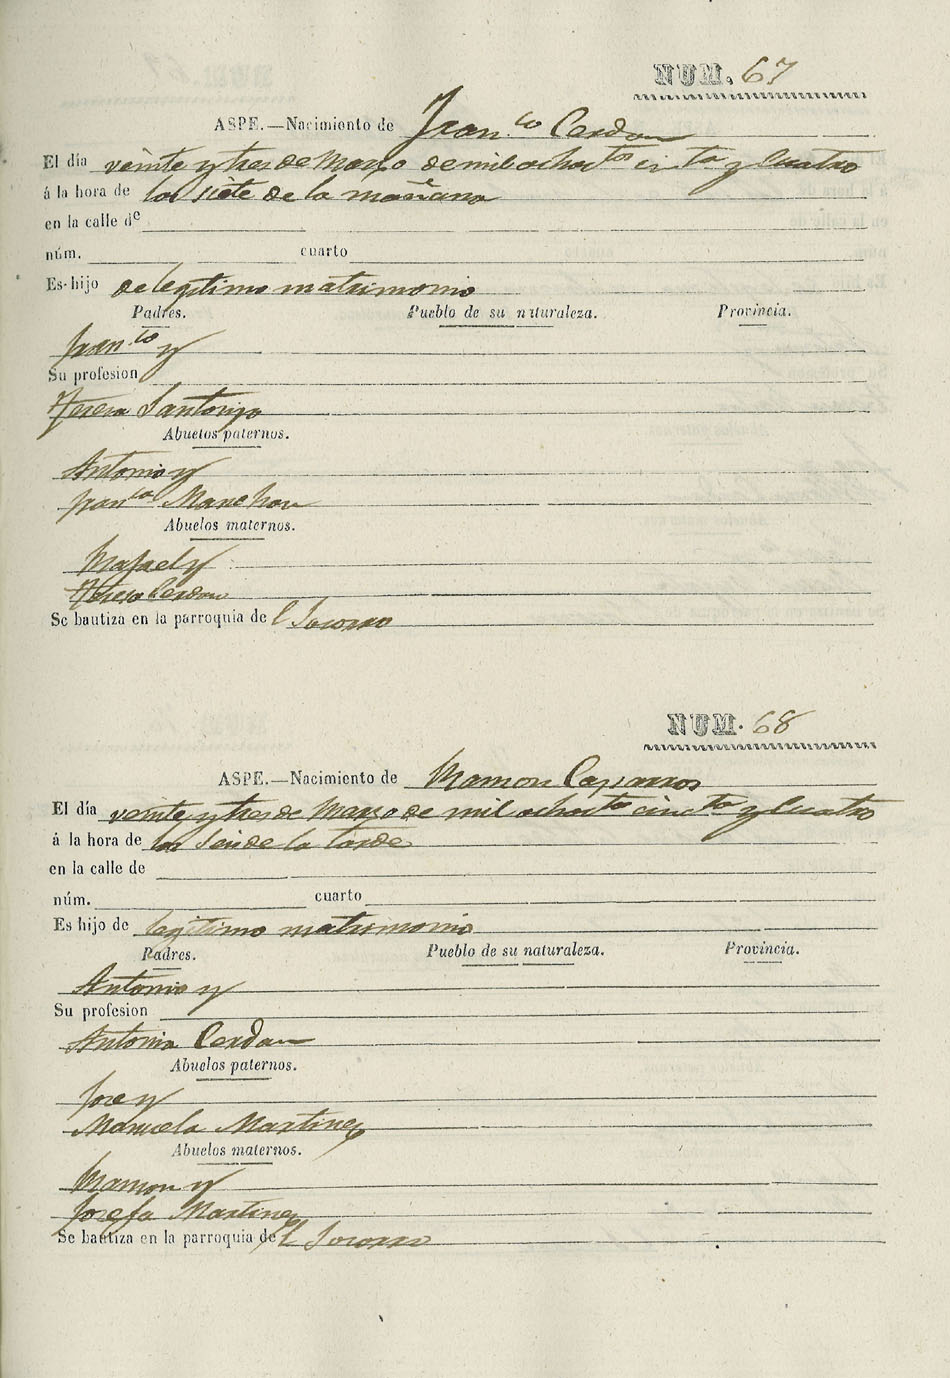 NUM. 67
ASPE.—Nacimiento de Fran.co Cerdan
El día veinte y tres de Marzo de mil ochotos cinta y Cuatro
á la hora de las siete de la mañana
en la calle de
núm. cuarto
Es hijo de legitimo matrimonio
Padres. Pueblo de su naturaleza. Provincia.
Fran.co y
Su profesion
Teresa Santonja
Abuelos paternos.
Antonio y
Fran.ca Manchon
Abuelos maternos.
Rafael y
Teresa Cerdan
Se bautiza en la parroquia del Socorro
NUM. 68
ASPE.—Nacimiento de Ramon Caparros
El día veinte y tres de Marzo de mil ochotos cincta y Cuatro
á la hora de las seis de la tarde
en la calle de
núm. cuarto
Es hijo de legitimo matrimonio
Padres. Pueblo de su naturaleza. Provincia.
Antonio y
Su profesion
Antonia Cerdan
Abuelos paternos.
Jose y
Manuela Martinez
Abuelos maternos.
Ramon y
Josefa Martinez
Se bautiza en la parroquia del Socorro